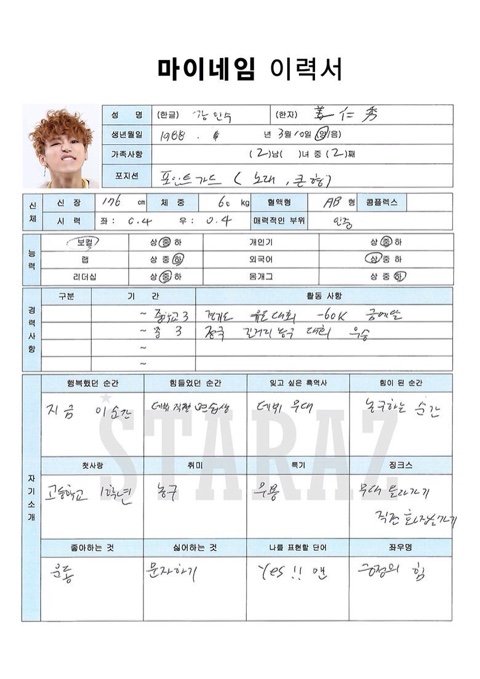 마이네임 이력서
성 명 (한글) 강인수 (한자) 姜仁秀
생년월일 1988. 년 3월 10일 (양/음)
가족사항 (2)남( )녀 중 (2)째
포지션 포인트가드 (노래, 큰형)
신체 신 장 176 cm 체 중 60 kg 혈액형 AB 형 콤플렉스
시 력 좌: 0.4 우: 0.4 매력적인 부위 인중
능력 보컬 상 중 하 개인기 상 중 하
랩 상 중 하 외국어 상 중 하
리더십 상 중 하 몸개그 상 중 하
경력사항 구분 기 간 활동 사항
~ 중학교3 대회 -60K 금메달
~ 중 3 전국 길거리 농구 대회 우승
~
~
자기소개
행복했던 순간 힘들었던 순간 잊고 싶은 흑역사 힘이 된 순간
지금 이 순간 데뷔 직전 연습생 데뷔 무대 농구하는 순간
STARAZ
첫사랑 취미 특기 징크스
고등학교 1학년 농구 무용 무대 올라가기
직전 화장실가기
좋아하는 것 싫어하는 것 나를 표현할 단어 좌우명
운동 문자하기 Yes!! 맨 긍정의 힘